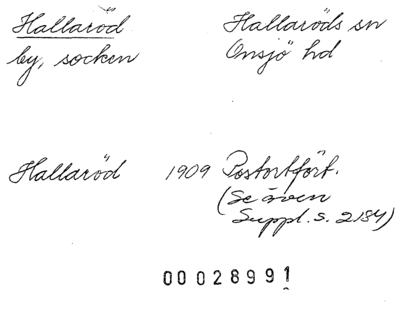 Hallaröd
Hallaröds sn
by, socken
Onsjö hd
Hallaröd 1909 Postortfört.
(Se även
Suppl. s. 2184)
00028991